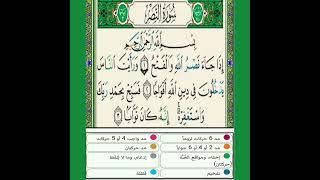 سُورَةُ النَّصْرِ
بِسْمِ اللَّهِ الرَّحْمَٰنِ الرَّحِيمِ
إِذَا جَاءَ نَصْرُ اللَّهِ وَالْفَتْحُ ١ وَرَأَيْتَ النَّاسَ
يَدْخُلُونَ فِي دِينِ اللَّهِ أَفْوَاجًا ٢ فَسَبِّحْ بِحَمْدِ رَبِّكَ
وَاسْتَغْفِرْهُ إِنَّهُ كَانَ تَوَّابًا ٣
مد 6 حركات لزوماً مد واجب 4 أو 5 حركات
مد 2 أو 4 أو 6 جوازاً مد حركتان
إخفاء ومواقع الغُنَّة (حركتان) إدغام وما لا يُلفَظ
تفخيم قلقلة